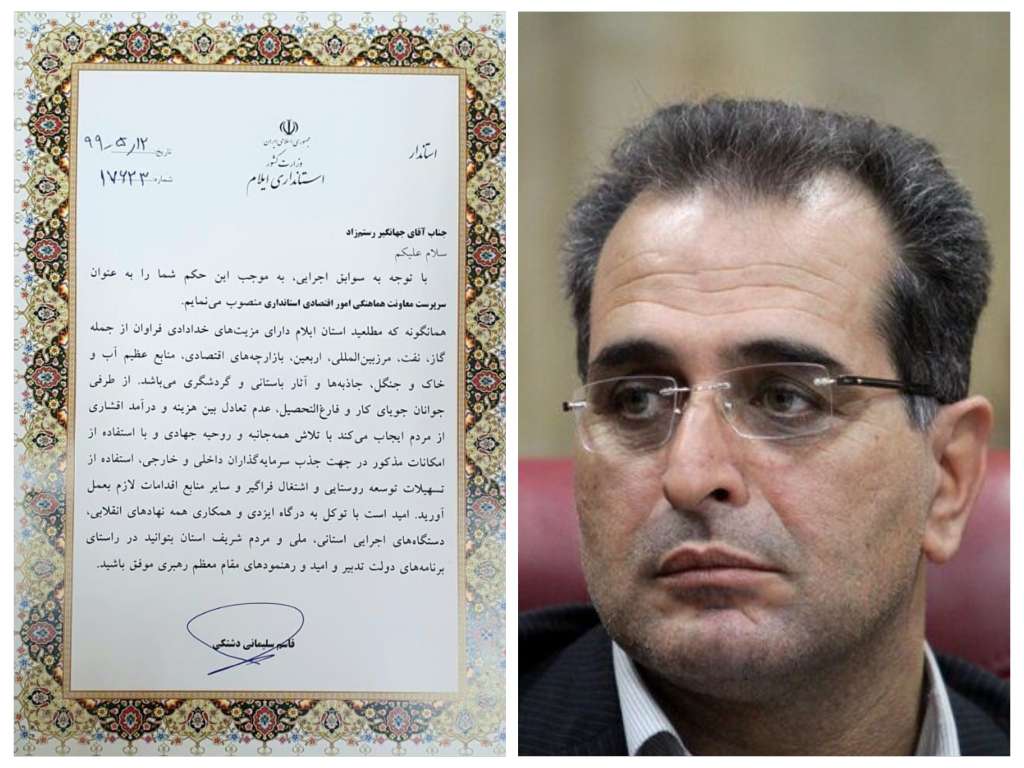 جمهوری اسلامی ایران
وزارت کشور
استانداری ایلام
استاندار
تاریخ: ۹۹،۵،۱۲
شماره: ۱۷۶۲۳
جناب آقای جهانگیر رستم‌زاد
سلام علیکم
با توجه به سوابق اجرایی، به موجب این حکم شما را به عنوان
سرپرست معاونت هماهنگی امور اقتصادی استانداری منصوب می‌نمایم.
همانگونه که مطلعید استان ایلام دارای مزیت‌های خدادادی فراوان از جمله
گاز، نفت، مرزبین‌المللی، اربعین، بازارچه‌های اقتصادی، منابع عظیم آب و
خاک و جنگل، جاذبه‌ها و آثار باستانی و گردشگری می‌باشد. از طرفی
جوانان جویای کار و فارغ‌التحصیل، عدم تعادل بین هزینه و درآمد اقشاری
از مردم ایجاب می‌کند با تلاش همه‌جانبه و روحیه جهادی و با استفاده از
امکانات مذکور در جهت جذب سرمایه‌گذاران داخلی و خارجی، استفاده از
تسهیلات توسعه روستایی و اشتغال فراگیر و سایر منابع اقدامات لازم بعمل
آورید. امید است با توکل به درگاه ایزدی و همکاری همه نهادهای انقلابی،
دستگاه‌های اجرایی استانی، ملی و مردم شریف استان بتوانید در راستای
برنامه‌های دولت تدبیر و امید و رهنمودهای مقام معظم رهبری موفق باشید.
قاسم سلیمانی دشتکی